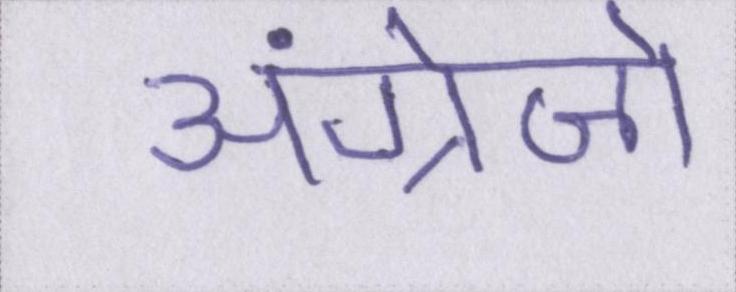 अंग्रेजो